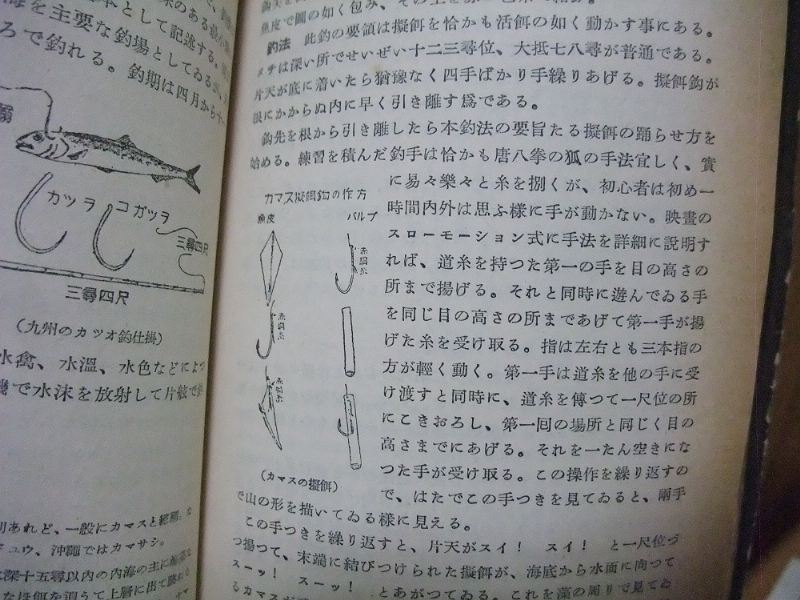 魚皮で圖の如く包み、その上を
釣法　此釣の要領は擬餌を恰かも活餌の如く動かす事にある。
タチは深い所でせいぜい十二三尋位、大抵七八尋が普通である。
片天が底に着いたら猶豫なく四手ばかり手繰りあげる。擬餌鈎が
根にかからぬ内に早く引き離す爲である。
鈎先を根から引き離したら本釣法の要旨たる擬餌の踊らせ方を
始める。練習を積んだ釣手は恰かも唐八拳の狐の手法宜しく、實
に易々樂々と糸を捌くが、初心者は初め一
時間内外は思ふ樣に手が動かない。映畫の
スローモーション式に手法を詳細に説明す
れば、道糸を持つた第一の手を目の高さの
所まで揚げる。それと同時に遊んでゐる手
を同じ目の高さの所まであげて第一手が揚
げた糸を受け取る。指は左右とも三本指の
方が輕く動く。第一手は道糸を他の手に受
け渡すと同時に、道糸を傳つて一尺位の所
にこきおろし、第一回の場所と同じく目の
高さまでにあげる。それを一たん空きにな
つた手が受け取る。この操作を繰り返すの
で、はたでこの手つきを見てゐると、兩手
で山の形を描いてゐる樣に見える。
この手つきを繰り返すと、片天がスイ！　スイ！　と一尺位づ
つ揚つて、末端に結びつけられた擬餌が、海底から水面に向つて
スーッ！　スーッ！　とあがつてゐる。これを藻の周りで見てゐ
るカマスが
カマス擬餌鈎の作方
魚皮
バルブ
糸銅糸
糸銅糸
糸銅糸
(カマスの擬餌)
本として記述する。
海を主要な釣場としてゐる
ろで釣れる。釣期は四月から十
カツラ
コガツラ
三尋四尺
三尋四尺
(九州のカツオ釣仕掛)
水禽、水溫、水色などによつ
機で水沫を放射して片舷で
あれど、一般にカマスと総稱
ギュウ、沖繩ではカマサシ。
水深十五尋以内の内海の主に
な活餌を追うて上層に出て